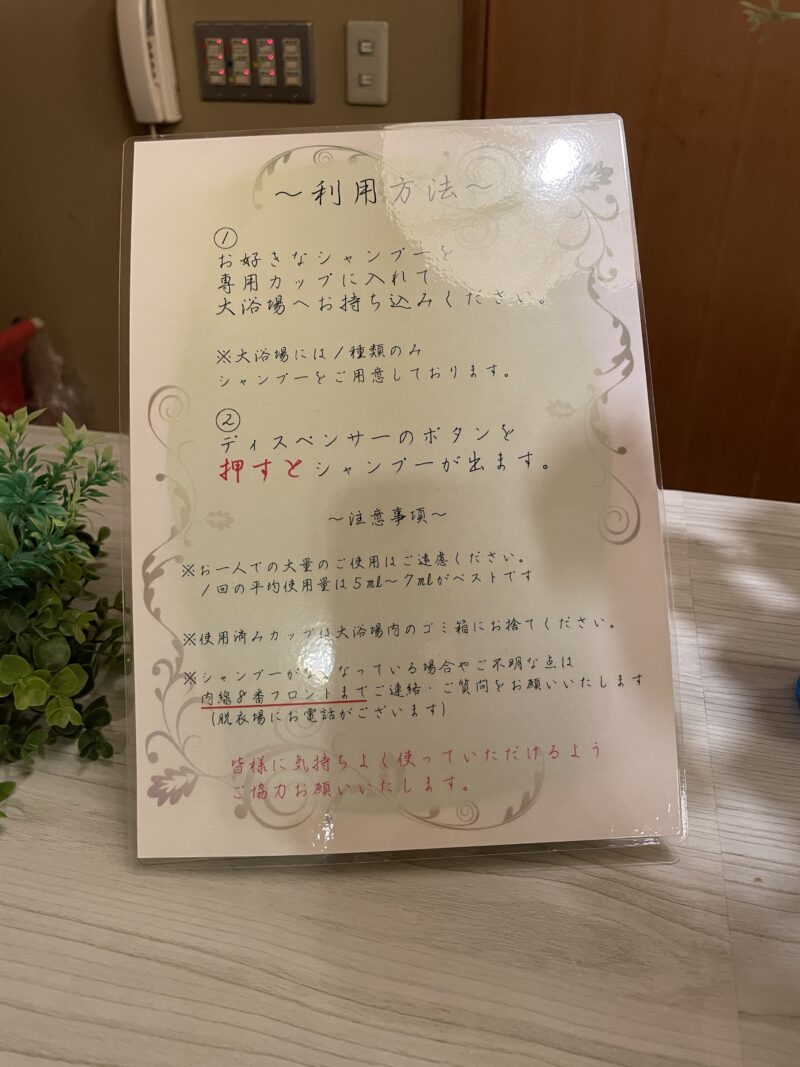 ～利用方法～
①
お好きなシャンプーを
専用カップに入れて
大浴場へお持ち込みください。
※大浴場には1種類のみ
シャンプーをご用意しております。
②
ディスペンサーのボタンを
押すとシャンプーが出ます。
～注意事項～
※お一人での大量のご使用はご遠慮ください。
1回の平均使用量は5ml～7mlがベストです
※使用済みカップは大浴場内のゴミ箱にお捨てください。
※シャンプーがなくなっている場合やご不明な点は
内線8番フロントまでご連絡・ご質問をお願いいたします
(脱衣場にお電話がございます)
皆様に気持ちよく使っていただけるよう
ご協力お願いいたします。